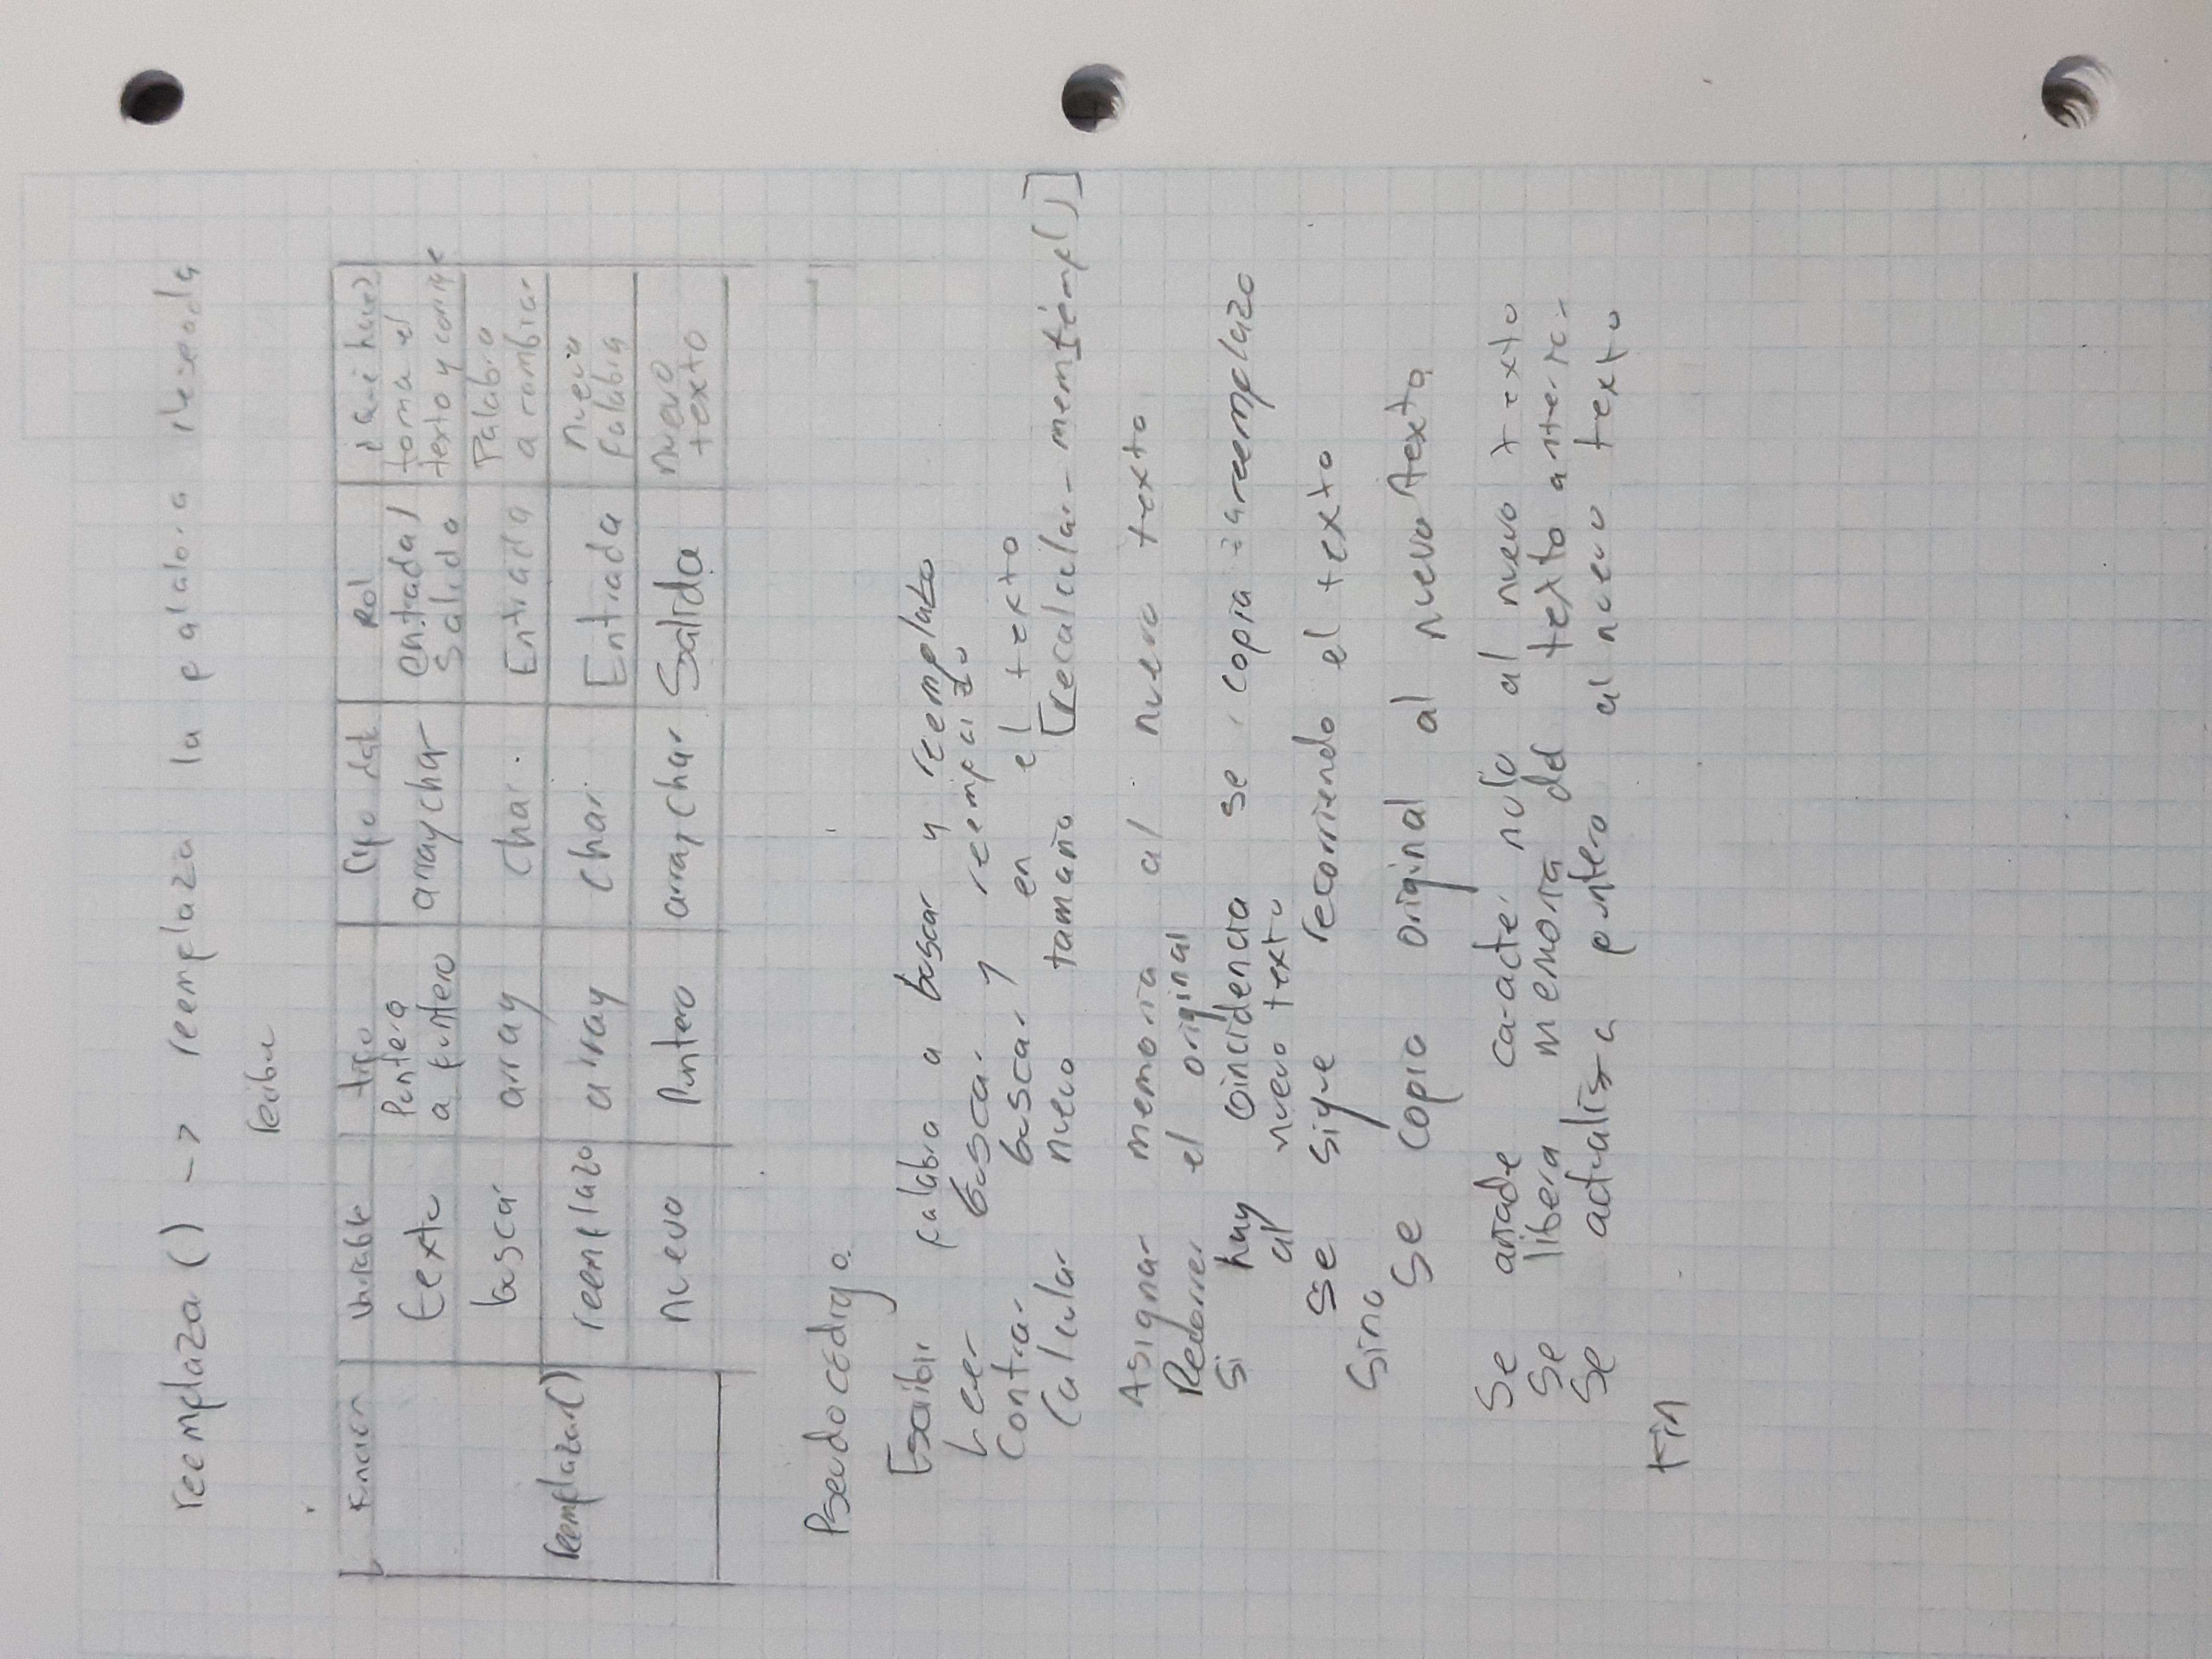 reemplaza() -> reemplaza la palabra deseada
recibe
Función variable tipo tipo dato Rol ¿Qué hace?
texto Puntero a puntero array char entrada/ Salida toma el texto y corrige
buscar array char Entrada Palabra a cambiar
reemplazar()
reemplazo array char Entrada nueva palabra
nuevo Puntero array char Salida nuevo texto
Pseudocódigo
Escribir palabra a buscar y reemplazo
Leer buscar y reemplazo
Contrar buscar en el texto
Calcular nuevo tamaño [recalcular_memtemp()]
Asignar memoria al nuevo texto
Recorrer el original
Si hay coincidencia se copia reemplazo
al nuevo texto
Se sigue recorriendo el texto
Sino
Se copia original al nuevo texto
Se añade caracter nulo al nuevo texto
Se libera memoria del texto anterior
Se actualiza puntero al nuevo texto
Fin